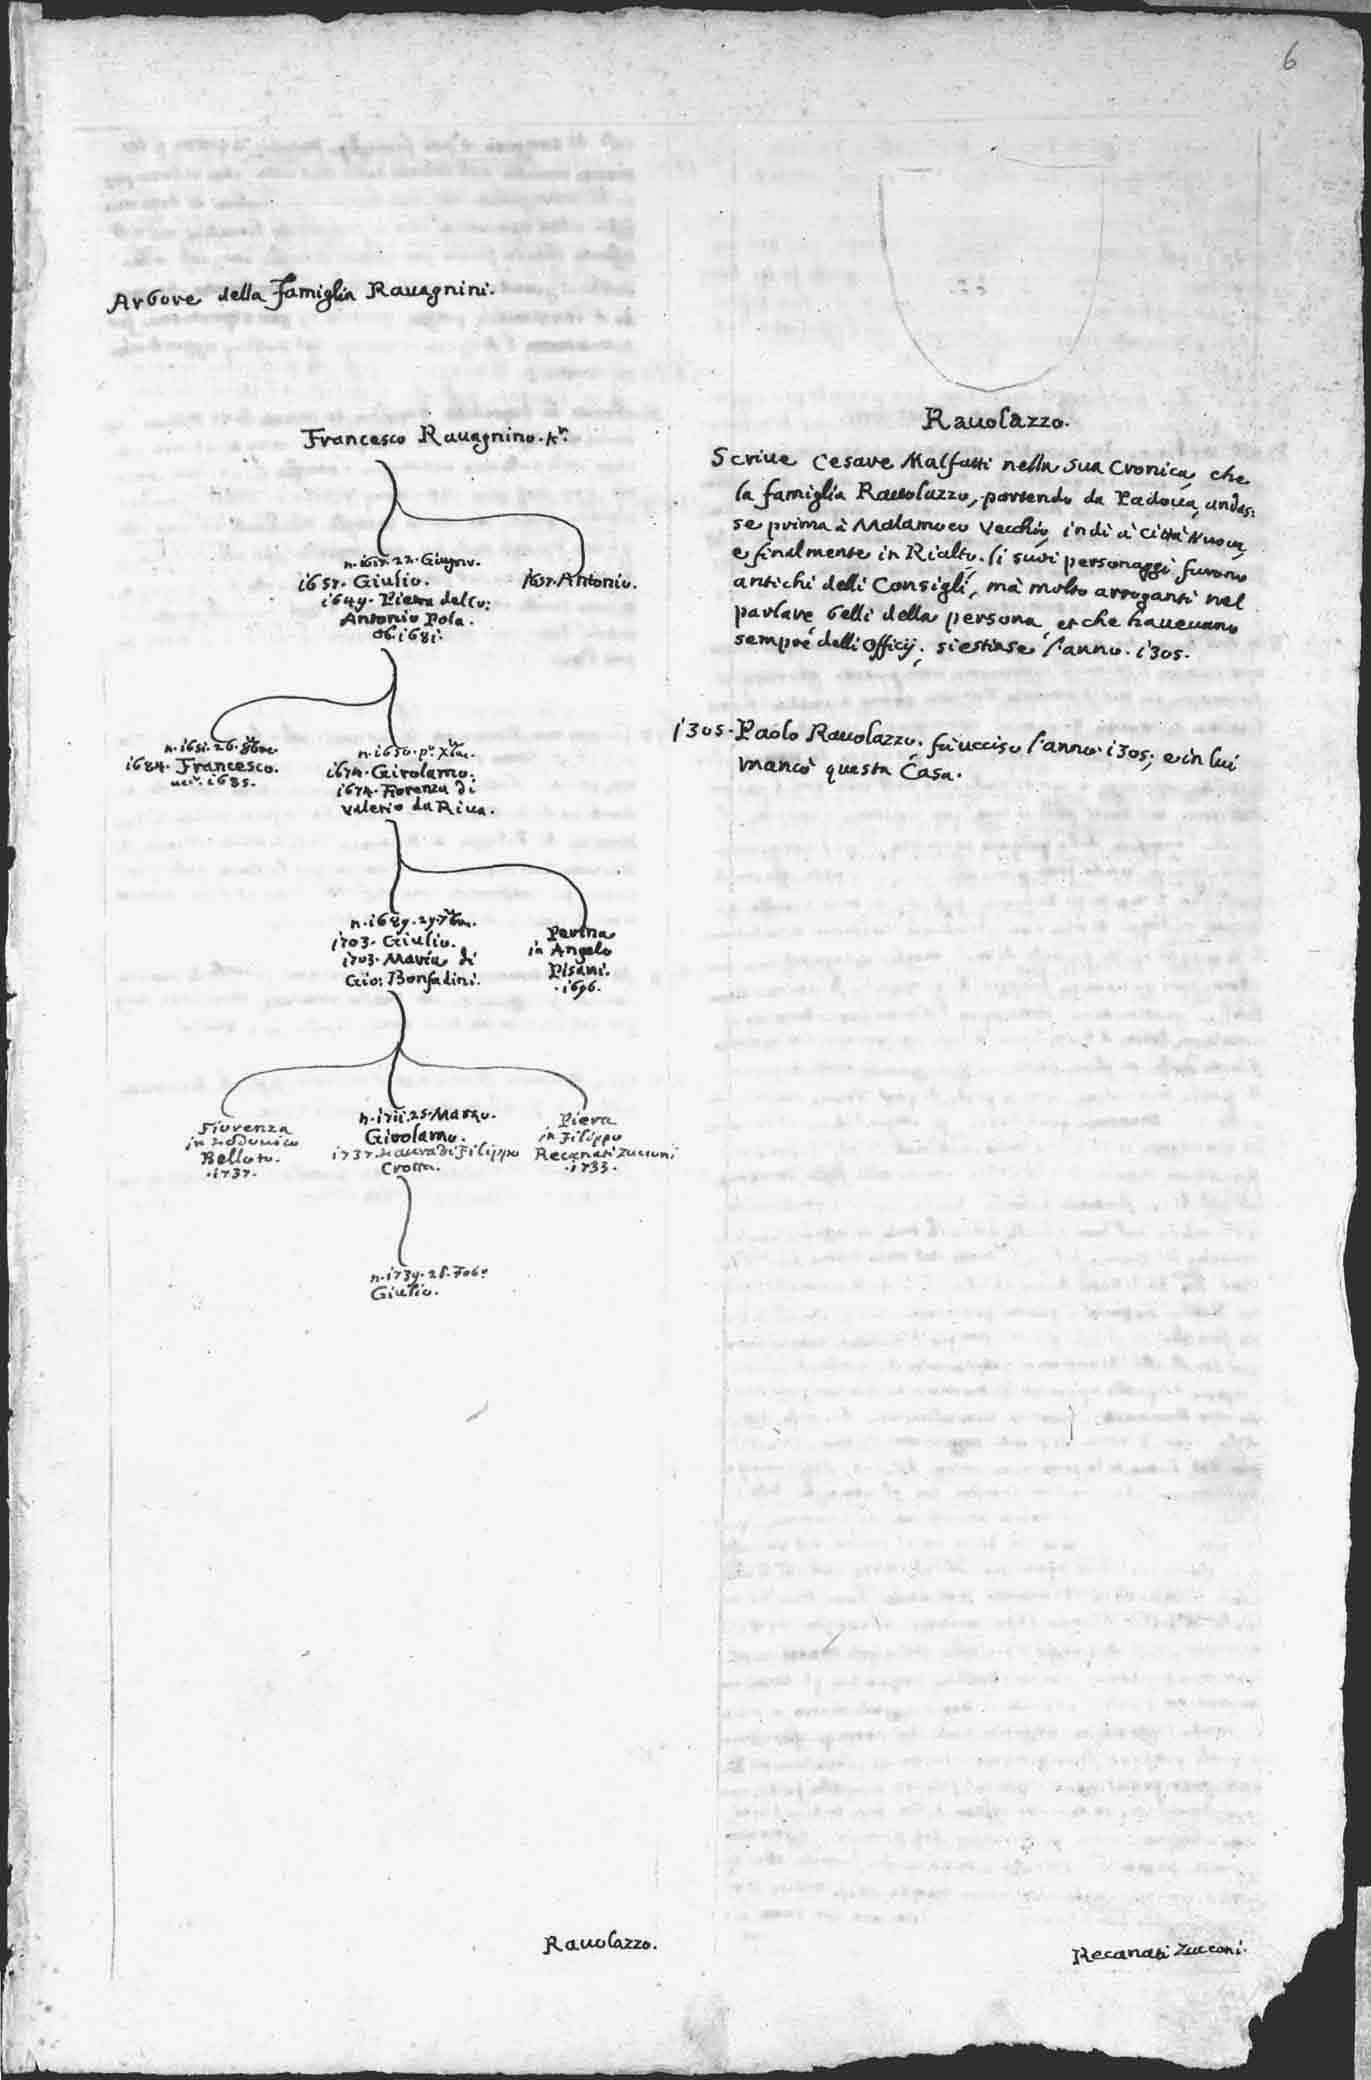 6
Arbore della Famiglia Rauagnini.
Francesco Rauagnino. Kr.
n. 1617. 22. Giugno.
1657. Giulio.
1649. Pietra del Co:
Antonio Pola.
ob. 1681.
1657. Antonio.
n. 1651. 26. 8bre.
1684. Francesco.
1685.
n. 1650. po. Xbre.
1674. Girolamo.
1674. Fiorenza di
Valerio da Riua.
n. 1689. 29. 7bre.
1703. Giulio.
1703. Maria di
Gio: Bonfadini.
Perina
in Angelo
Pisani.
.1696.
Fiorenza
in Lodouico
Belloto.
.1737.
n. 1711. 25. Marzo.
Girolamo.
1737. Laura di Filippo
Crotta.
Piera
in Filippo
Recanati Zucconi
.1733.
n. 1739. 28. Febo.
Giulio.
Rauolazzo.
Rauolazzo.
Scriue Cesare Malfatti nella sua Cronica, che
la famiglia Rauolazzo, partendo da Padoua, andas:
se prima à Malamoco Vecchio, indi à Città Nuoua,
e finalmente in Rialto. li suoi personaggi furono
antichi delli Consigli, mà molto arroganti nel
parlare belli della persona, et che haueuano
sempre delli Officij; si estinse l'anno. 1305.
1305. Paolo Rauolazzo. fù ucciso l'anno. 1305; e in lui
mancò questa Casa.
Recanati Zucconi.